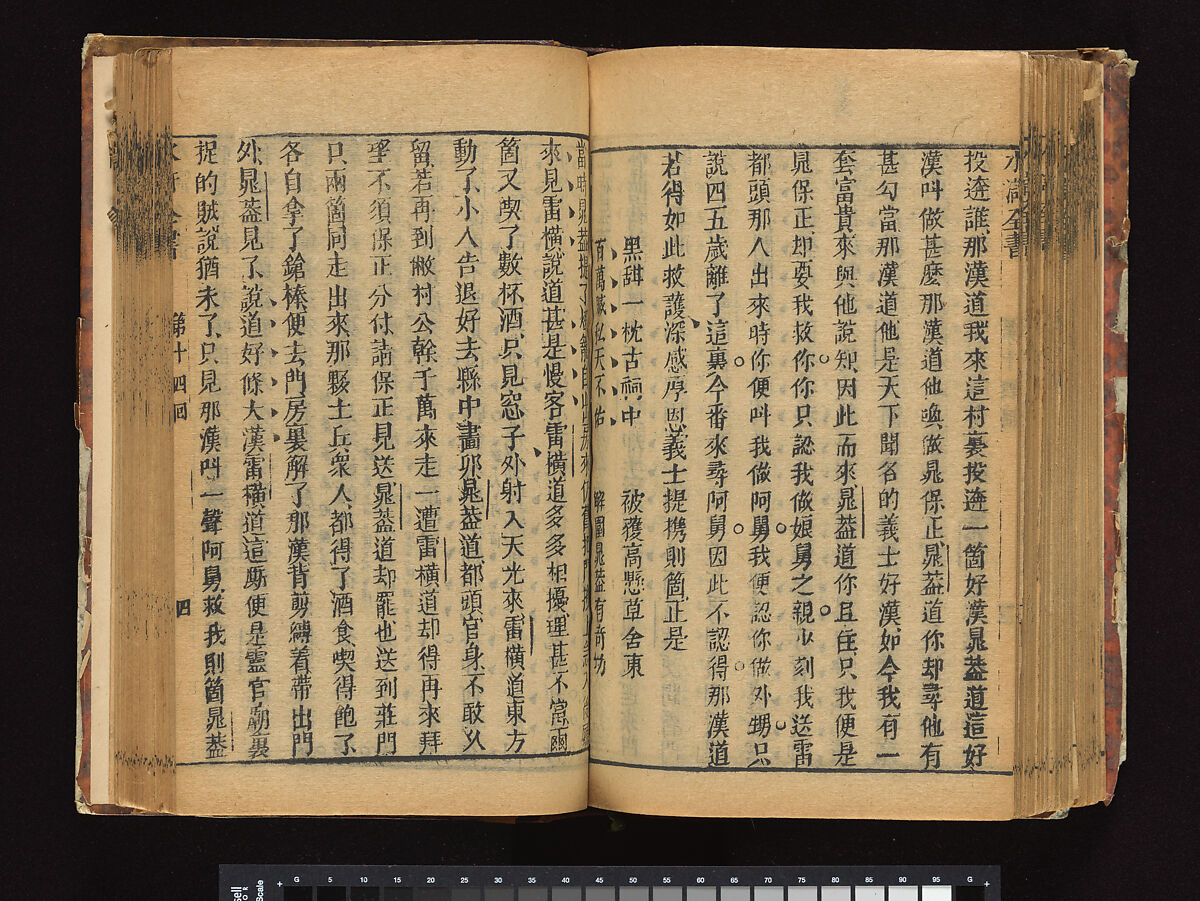 水滸全書
投逩誰那漢道我來這村裏投逩一箇好漢晁葢道這好
漢呌做甚麽那漢道他喚做晁保正晁葢道你却尋他有
甚勾當那漢道他是天下聞名的義士好漢如今我有一
套富貴來與他說知因此而來晁葢道你且住只我便是
晁保正却要我救你你只認我做娘舅之親少刻我送雷
都頭那人出來時你便呌我做阿舅我便認你做外甥只
說四五歲離了這裏今番來尋阿舅因此不認得那漢道
若得如此救護深感厚恩義士提携則箇正是
黑甜一枕古祠中 被獲高懸草舍東
百萬贓私天不佑 解圍晁葢有奇功
當時晁葢提了燈籠自出房來仍舊把門
來見雷橫說道甚是慢客雷橫道多多相擾理甚不當兩
箇又喫了數杯酒只見窓子外射入天光來雷橫道東方
動了小人告退好去縣中畫卯晁葢道都頭官身不敢久
留若再到敝村公幹千萬來走一遭雷橫道却得再來拜
望不須保正分付請保正免送晁葢道却罷也送到莊門
只兩箇同走出來那夥土兵衆人都得了酒食喫得飽了
各自拿了鎗棒便去門房裏解了那漢背剪縛着帶出門
外晁葢見了說道好條大漢雷橫道這厮便是靈官廟裏
捉的賊說猶未了只見那漢呌一聲阿舅救我則箇晁葢
水滸全書 第十四回 四
5 10 15 20 25 30 35 40 45 50 55 60 65 70 75 80 85 90 95